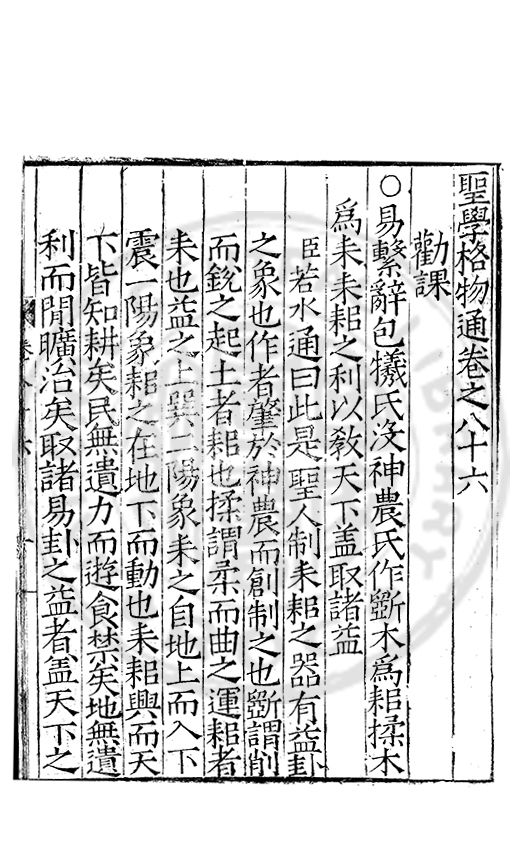 聖學格物通卷之八十六
勸課
○易繫辭包犧氏沒神農氏作斲木爲耜揉木
爲耒耒耜之利以敎天下盖取諸益
臣若水通曰此是聖人制耒耜之器有益卦
之象也作者肇於神農而創制之也斲謂削
而銳之起土者耜也揉謂柔而曲之運耜者
耒也益之上巽二陽象耒之自地上而入下
震一陽象耜之在地下而動也耒耜興而天
下皆知耕矣民無遺力而遊食禁矣地無遺
利而閒曠治矣取諸易卦之益者盖天下之